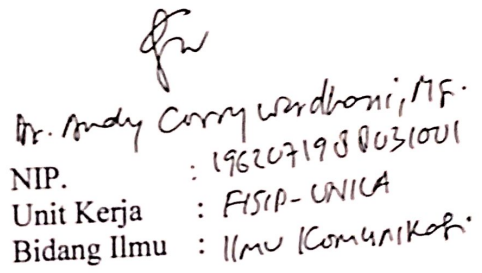 Dr. Andy Corry Wardhani, M.
NIP. : 196207198031001
Unit Kerja : FISIP-UNILA
Bidang Ilmu : Ilmu Komunikasi